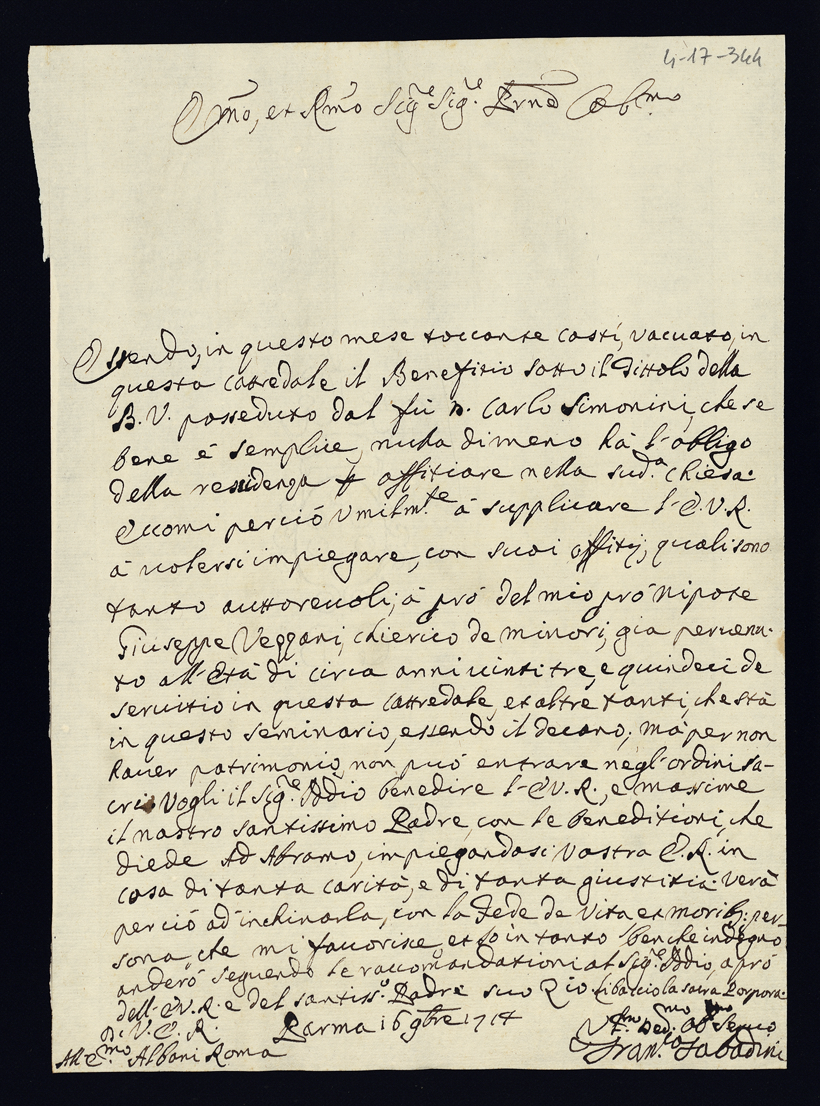 4-17-344
Em̃o, et Rm̃o Sig.re Sig.re Prñe Col.mo
Essendo, in questo mese toccante costì, vacuato, in
questa Cattedrale il Benefitio sotto il Tittolo della
B. V. posseduto dal fù D. Carlo Simonini, che se
bene è semplice, nulla di meno hà l'obligo
della residenza & offitiare nella sud.a chiesa:
Eccomi perciò Umilm.te à supplicare l'E.V.R.
à volersi impiegare, con suoi offitij, quali sono
tanto auttorevoli, à prò del mio prò Nipote
Giuseppe Veggani, chierico de minori, gia perven-
to all'Età di circa anni vinti tre, e quindeci de
servitio in questa Cattredale, et altre tanti, che stà
in questo seminario, essendo il decano; mà per non
haver patrimonio, non può entrare negl'ordini sa-
cri: Vogli il Sig.re Iddio benedire l'E.V.R., e massime
il nostro santissimo Padre, con le beneditioni, che
diede Ad Abramo, impiegandosi Vostra E.R. in
cosa di tanta carità, e di tanta giustitia: Verà
perciò ad inchinarla, con la Fede de Vita et morib9: per-
sona, che mi favorisce, et Io in tanto ben che indegno
anderò seguendo le raccomandationi al Sig.re Iddio, a prò
dell'E.V.R. e del santiss.o Padre suo Zio li baccio la sacra Porpora:
Di V.E.R.
Parma 16 9bre 1714
U.mo Dev.mo Ob.mo Servo
All'E.mo Albani Roma
Fran.co Sabadini